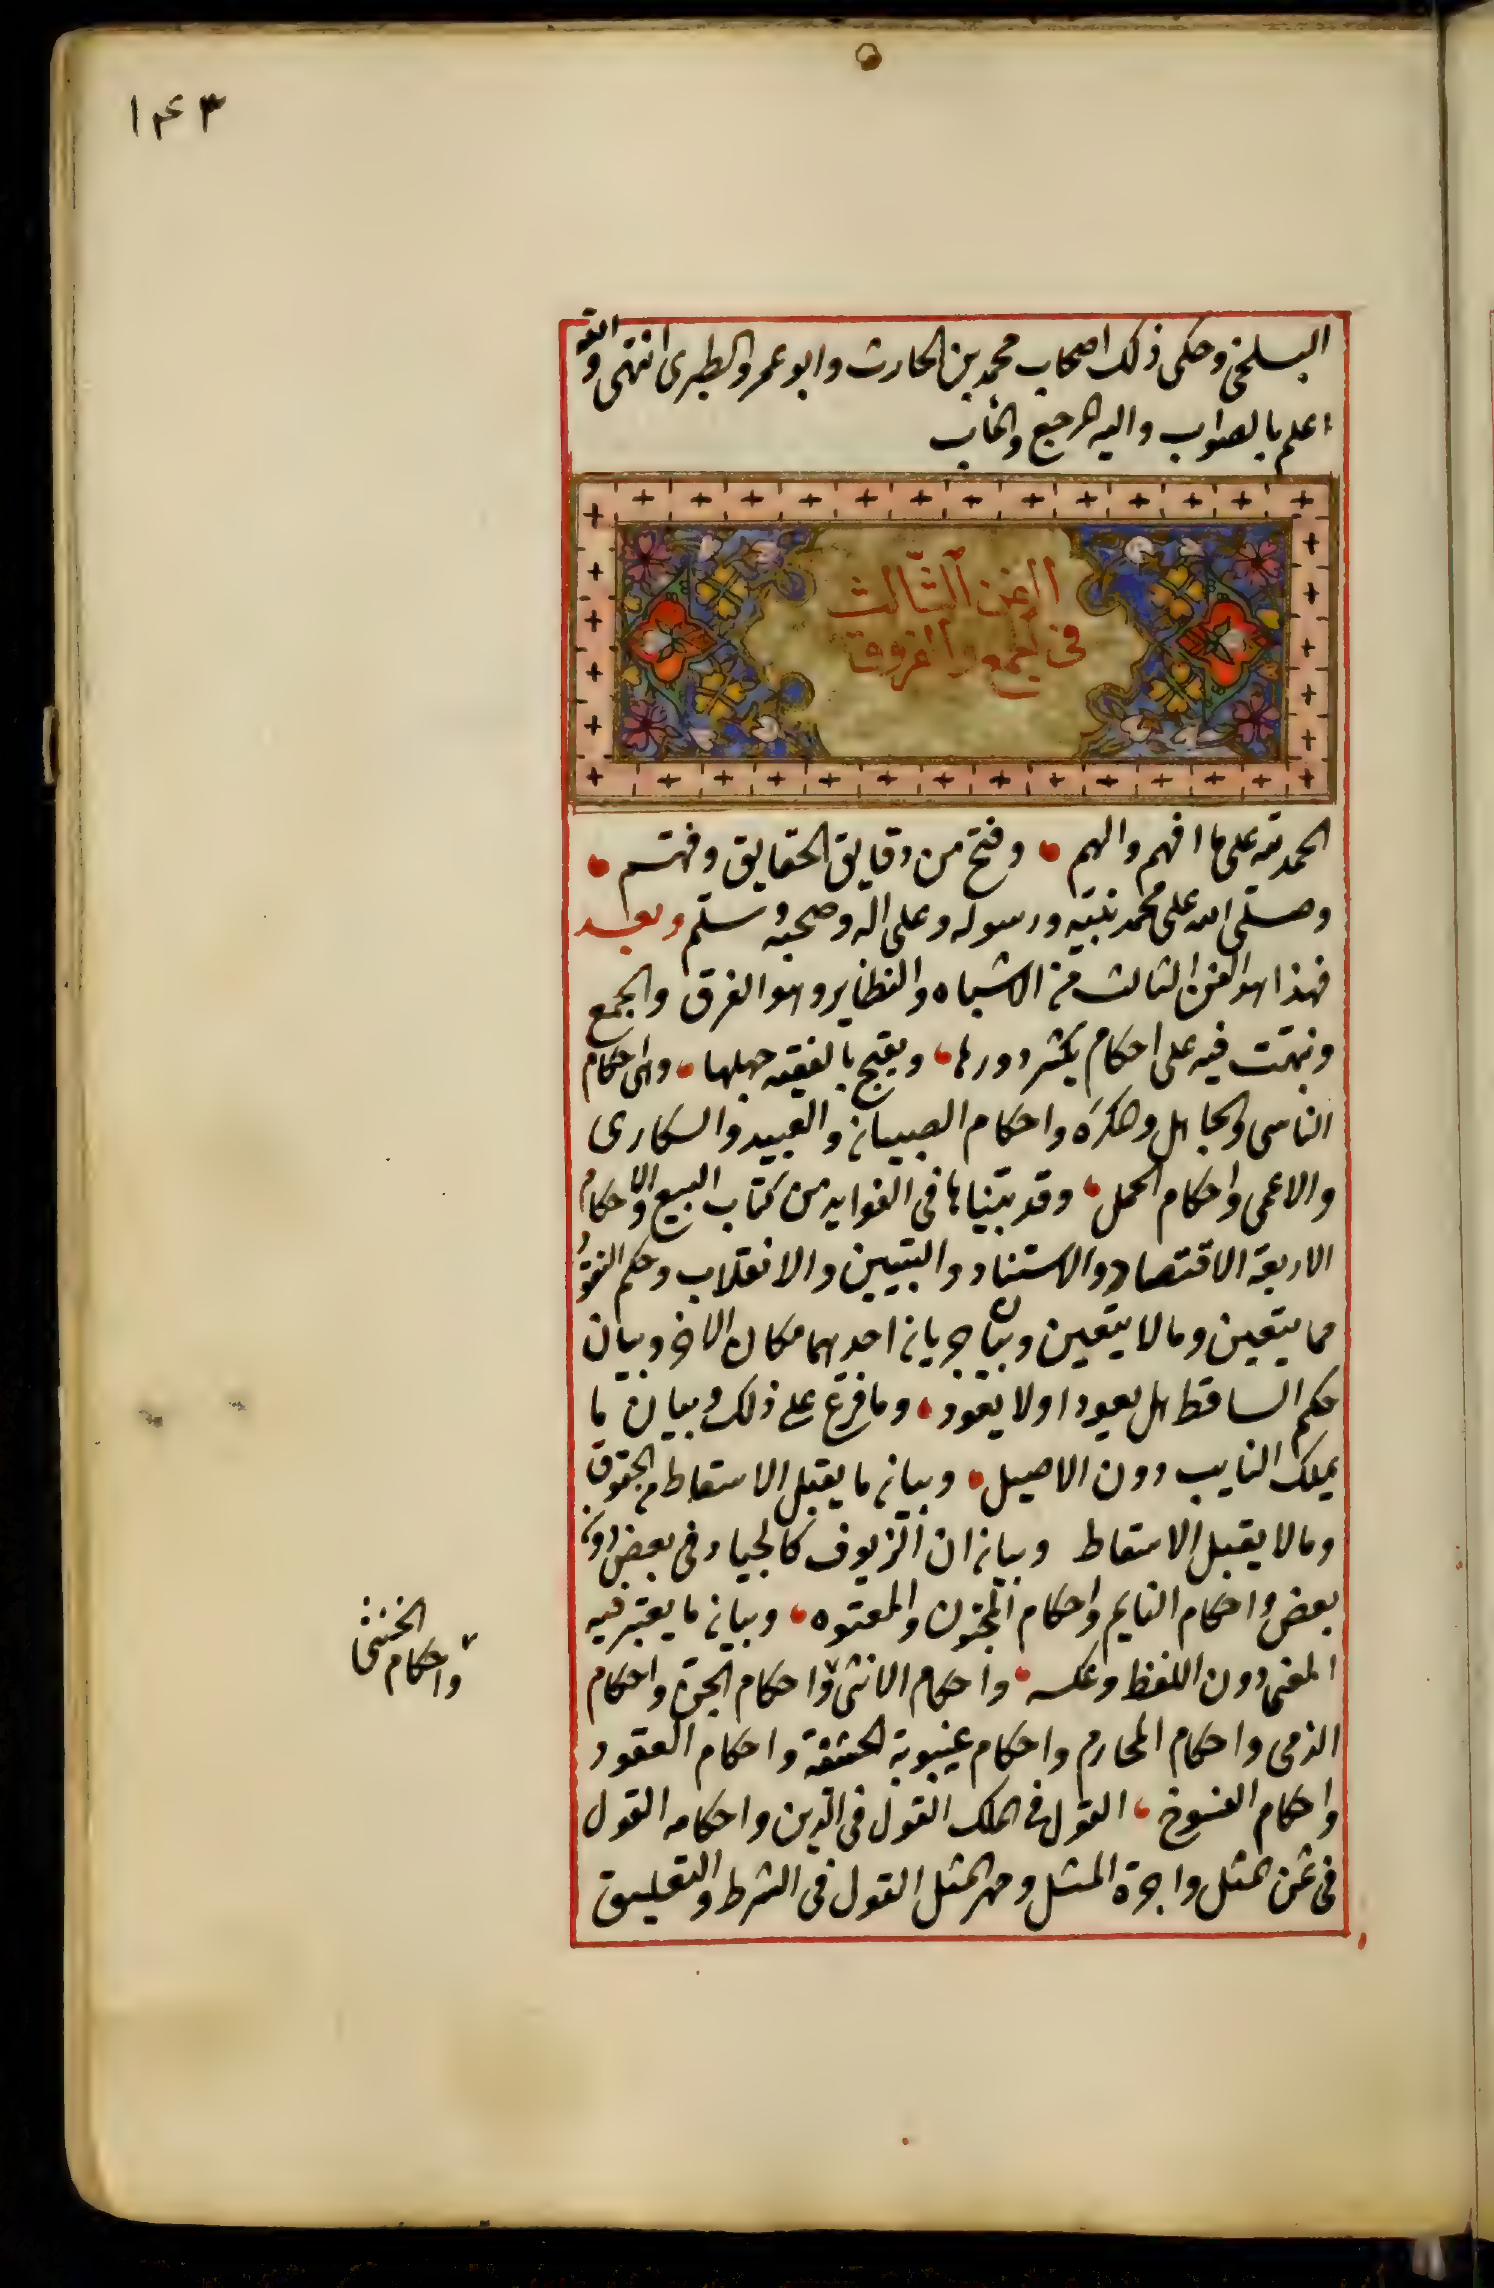 ١٤٣
البلخي وحكى ذلك اصحاب محمد بن الحارث وابو عمرو الطبرى انتهى والله
اعلم بالصواب واليه المرجع والماب
الفن الثالث
فى الجمع والفروق
الحمد لله على ما افهم والهم • وفتح من دقايق الحقايق وفهم •
وصلى الله على محمد نبيه ورسوله وعلى اله وصحبه وسلم وبعد
فهذا هو الفن الثالث من الاشباه والنظاير وهو الفرق والجمع
ونبهت فيه على احكام يكثر دورها • ويقبح بالفقيه جهلها • وهى احكام
الناسى والجاهل والمكره واحكام الصبيان والعبيد والسكارى
والاعمى واحكام الحمل • وقد بيناها فى الفوايد من كتاب البيع والاحكام
الاربعة الاقتصار والاستناد والتبيين والانقلاب وحكم النقود
مما يتعين ومالا يتعين وبيان جريان احديهما مكان الاخر وبيان
حكم الساقط هل يعود اولا يعود • وما فرع على ذلك وبيان ما
يملك النايب دون الاصيل • وبيان ما يقبل الاسقاط من الحقوق
ومالا يقبل الاسقاط وبيان ان الزيوف كالجياد فى بعض دون
بعض واحكام النايم واحكام المجنون والمعتوه • وبيان ما يعتبر فيه
المعنى دون اللفظ وعكسه • واحكام الانثى واحكام الجن واحكام
واحكام الخنثى
الذمى واحكام المحارم واحكام غيبوبة الحشفة واحكام العقود
واحكام الفسوخ • القول فى الملك القول فى الدين واحكامه القول
فى ثمن المثل واجرة المثل ومهر المثل القول فى الشرط والتعليق